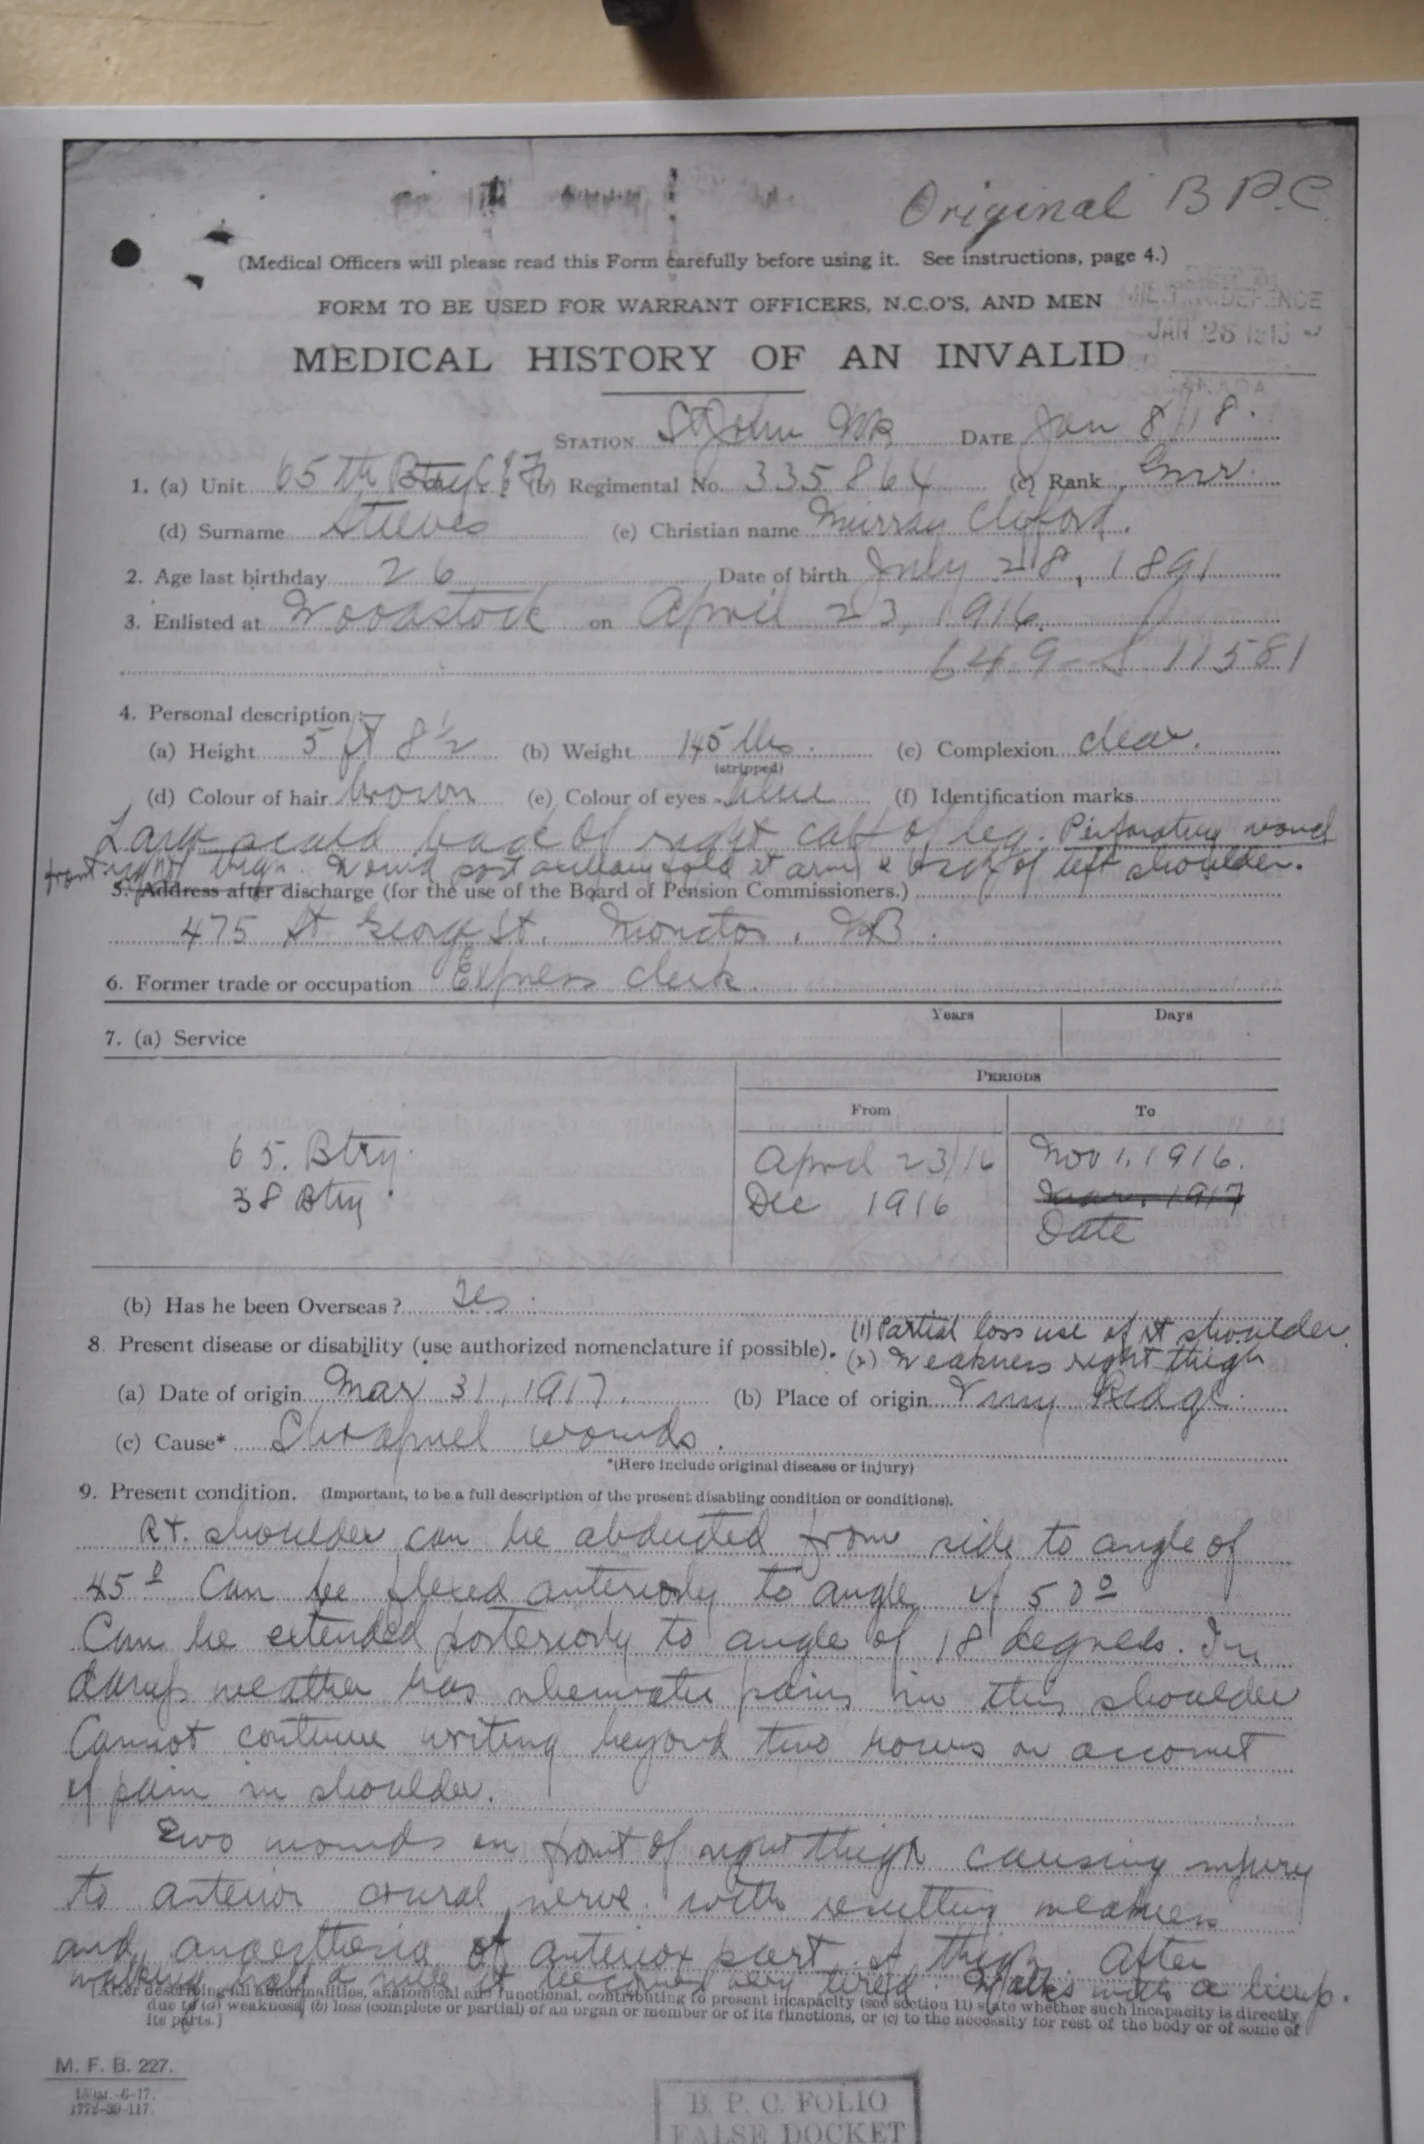 Original B P.C.
(Medical Officers will please read this Form carefully before using it. See instructions, page 4.)
FORM TO BE USED FOR WARRANT OFFICERS, N.C.O'S, AND MEN
DEFENCE
JAN 26
MEDICAL HISTORY OF AN INVALID
STATION St John NB DATE Jan 8/18.
1. (a) Unit 65th Bty (b) Regimental No. 335864 (c) Rank Gnr.
(d) Surname Steeves (e) Christian name Murray Clifford.
2. Age last birthday 26 Date of birth July 28, 1891
3. Enlisted at Woodstock on April 23, 1916.
649-S 11581
4. Personal description:—
(a) Height 5 ft 8½ (b) Weight 145 lbs. (c) Complexion clear.
(stripped)
(d) Colour of hair brown (e) Colour of eyes blue (f) Identification marks
Large scald back of right calf of leg. Perforating wound
front right thigh. Wound post axillary fold rt arm & back of left shoulder.
5. Address after discharge (for the use of the Board of Pension Commissioners.)
475 St George St. Moncton, NB.
6. Former trade or occupation Express clerk.
Years Days
7. (a) Service
PERIODS
From To
65. Btry. April 23/16 Nov 1, 1916.
38 Btry. Dec 1916 1917
Date
(b) Has he been Overseas? Yes.
(1) Partial loss use of rt shoulder
8. Present disease or disability (use authorized nomenclature if possible). (2) Weakness right thigh
(a) Date of origin Mar 31, 1917. (b) Place of origin Vimy Ridge.
(c) Cause* Shrapnel wounds.
*(Here include original disease or injury)
9. Present condition. (Important, to be a full description of the present disabling condition or conditions).
Rt. shoulder can be abducted from side to angle of
45° Can be flexed anteriorly to angle of 50°
Can be extended posteriorly to angle of 18 degrees. In
damp weather has rheumatic pains in this shoulder
Cannot continue writing beyond two hours on account
of pain in shoulder.
Two wounds on front of right thigh causing injury
to anterior crural nerve with resulting weakness
and anaesthesia of anterior part of thigh. After
walking half a mile it becomes very tired. Walks with a limp.
[After describing all abnormalities, anatomical and functional, contributing to present incapacity (see section 11) state whether such incapacity is directly
due to (a) weakness, (b) loss (complete or partial) of an organ or member or of its functions, or (c) to the necessity for rest of the body or of some of
its parts.]
M. F. B. 227.
-6-17.
1772-39-117.
B. P. C. FOLIO
FALSE DOCKET